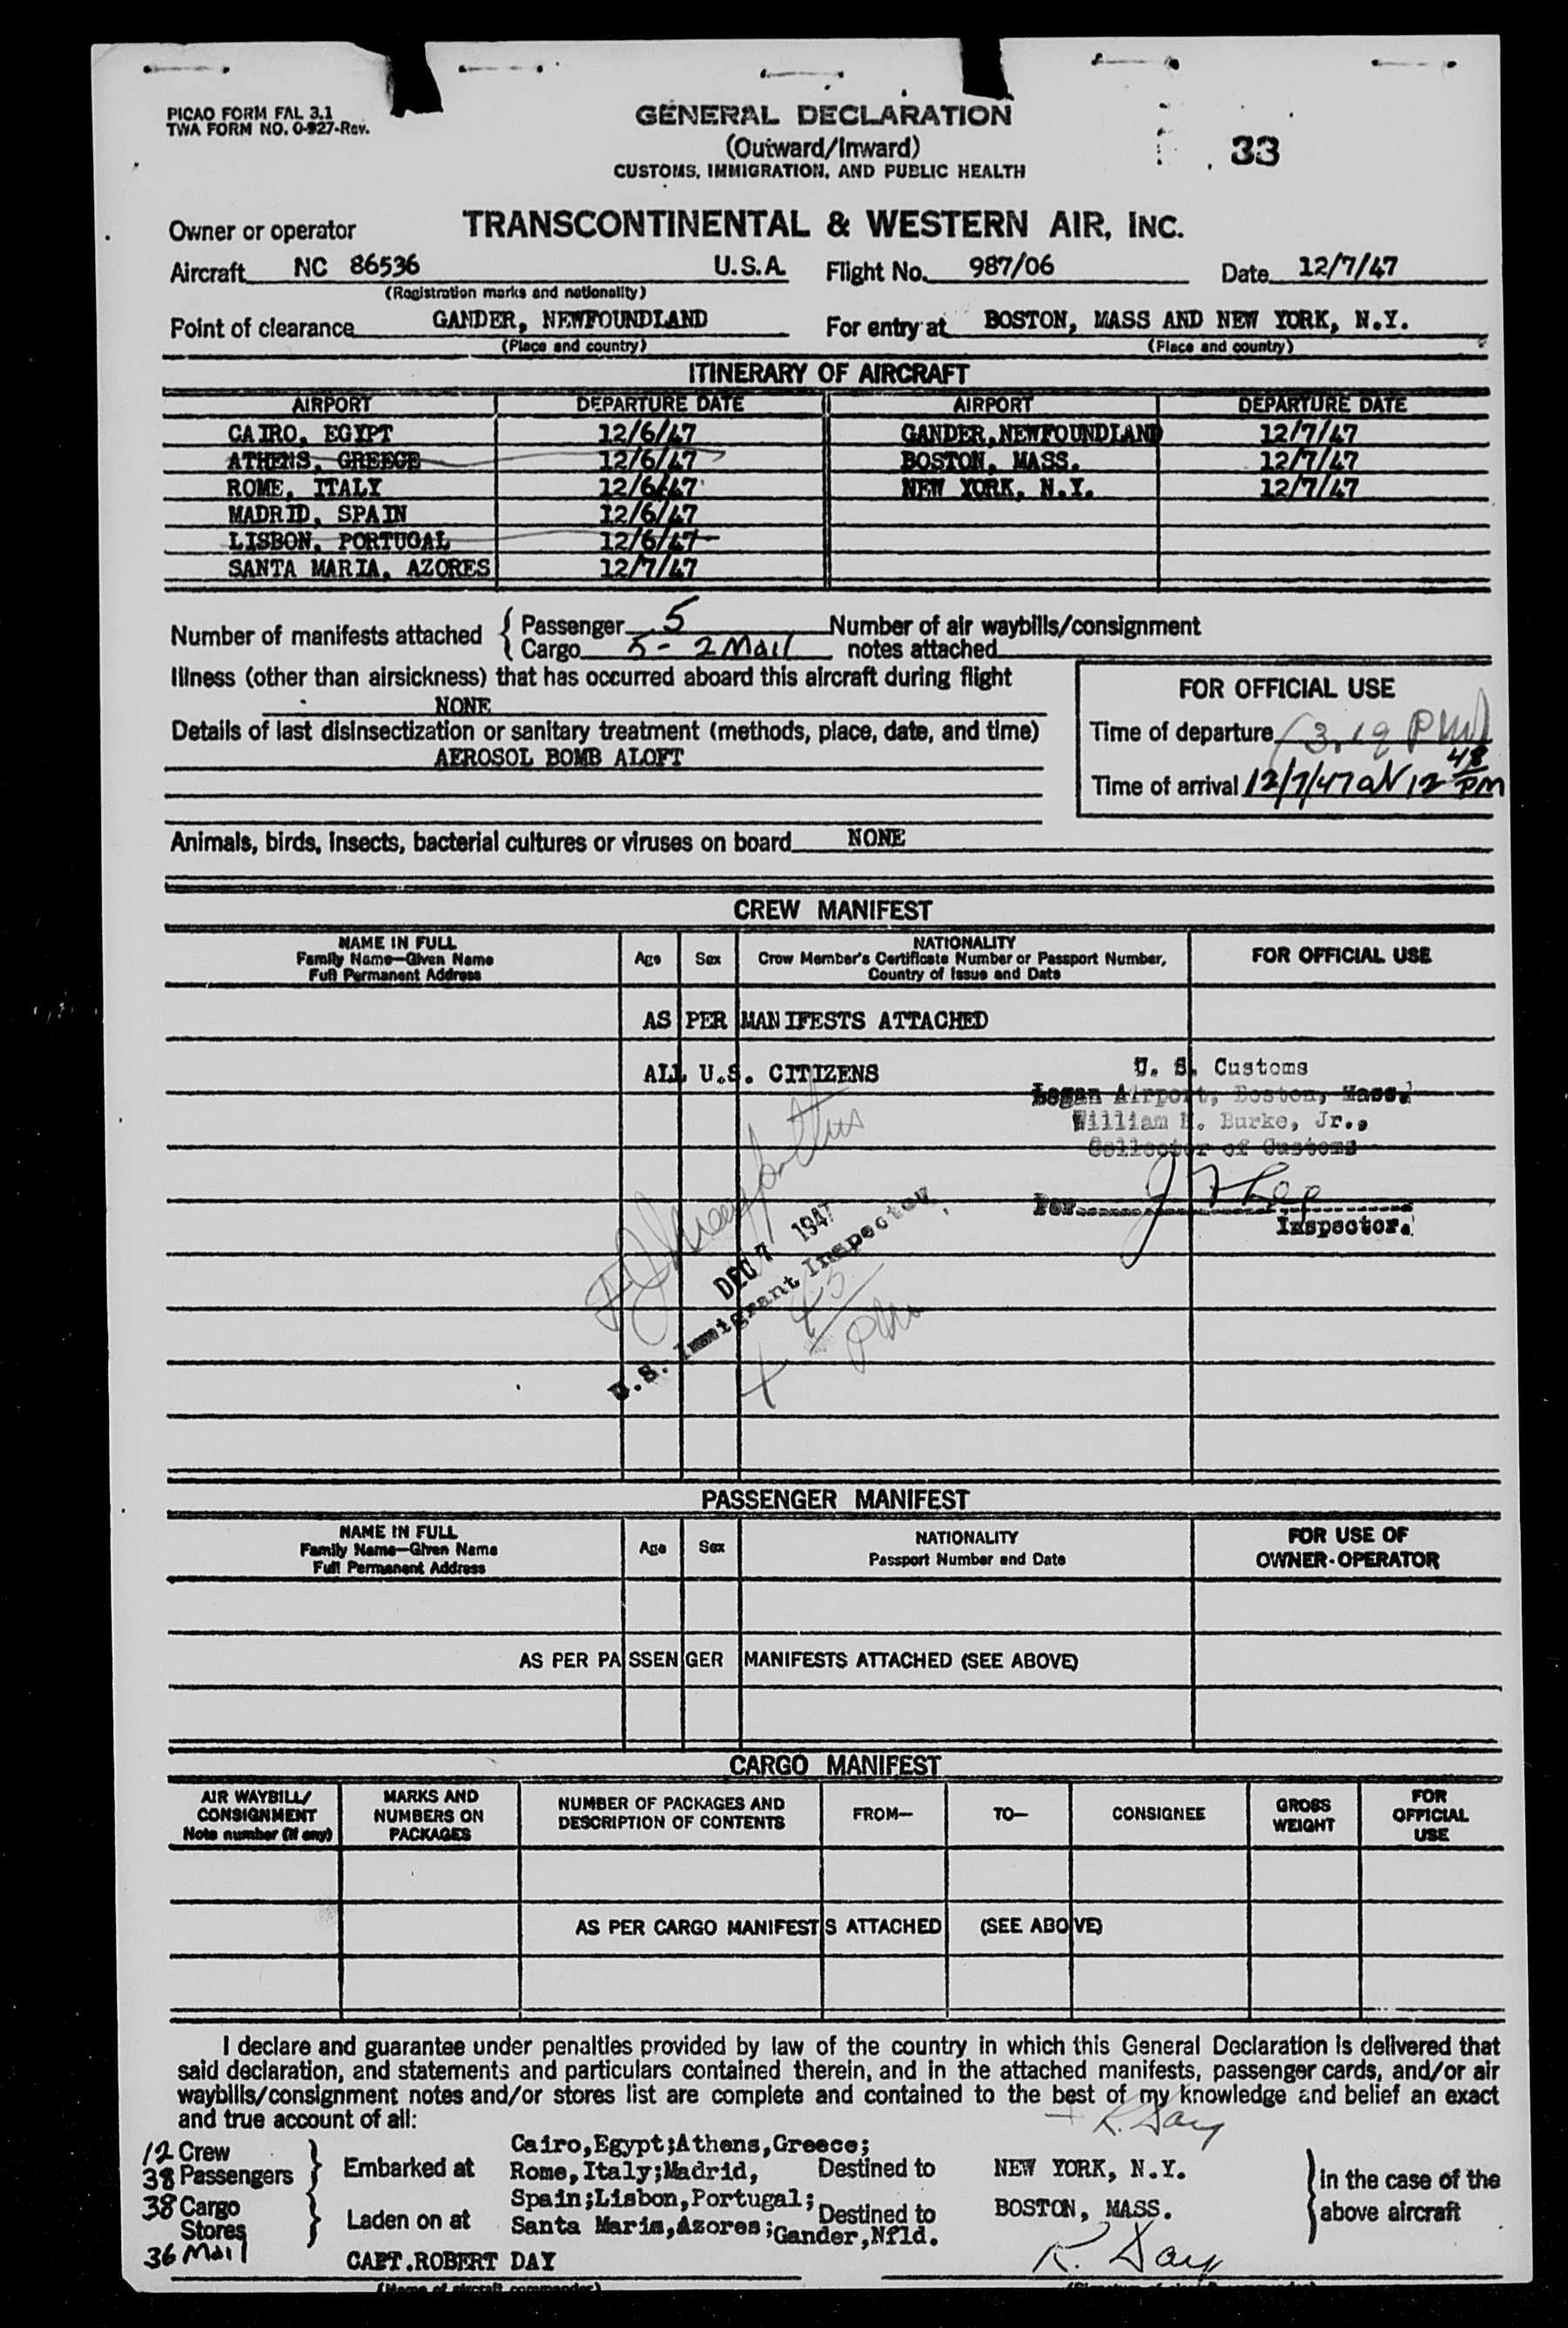 PICAO FORM FAL 3.1
TWA FORM NO. O-927-Rev.
GENERAL DECLARATION
(Outward/Inward)
CUSTOMS, IMMIGRATION, AND PUBLIC HEALTH
33
Owner or operator TRANSCONTINENTAL & WESTERN AIR, INC.
Aircraft NC 86536 U.S.A. Flight No. 987/06 Date 12/7/47
(Registration marks and nationality)
Point of clearance GANDER, NEWFOUNDLAND For entry at BOSTON, MASS AND NEW YORK, N.Y.
(Place and country) (Place and country)
ITINERARY OF AIRCRAFT
AIRPORT DEPARTURE DATE AIRPORT DEPARTURE DATE
CAIRO, EGYPT 12/6/47 GANDER,NEWFOUNDLAND 12/7/47
ATHENS, GREECE 12/6/47 BOSTON, MASS. 12/7/47
ROME, ITALY 12/6/47 NEW YORK, N.Y. 12/7/47
MADRID, SPAIN 12/6/47
LISBON, PORTUGAL 12/6/47
SANTA MARIA, AZORES 12/7/47
Number of manifests attached { Passenger 5 Number of air waybills/consignment
Cargo 5 - 2 Mail notes attached
Illness (other than airsickness) that has occurred aboard this aircraft during flight
NONE
FOR OFFICIAL USE
Details of last disinsectization or sanitary treatment (methods, place, date, and time)
AEROSOL BOMB ALOFT
Time of departure 3.19 PM
Time of arrival 12/7/47 at 12 48 PM
Animals, birds, insects, bacterial cultures or viruses on board NONE
CREW MANIFEST
NAME IN FULL
Family Name—Given Name
Full Permanent Address
Age Sex
NATIONALITY
Crew Member's Certificate Number or Passport Number,
Country of Issue and Date
FOR OFFICIAL USE
AS PER MANIFESTS ATTACHED
ALL U.S. CITIZENS
U. S. Customs
Logan Airport, Boston, Mass.
William H. Burke, Jr.,
Collector of Customs
Per
Inspector.
DEC 7 1947
U.S. Immigrant Inspector
4 45 pm
PASSENGER MANIFEST
NAME IN FULL
Family Name—Given Name
Full Permanent Address
Age Sex
NATIONALITY
Passport Number and Date
FOR USE OF
OWNER-OPERATOR
AS PER PASSENGER MANIFESTS ATTACHED (SEE ABOVE)
CARGO MANIFEST
AIR WAYBILL/
CONSIGNMENT
Note number (if any)
MARKS AND
NUMBERS ON
PACKAGES
NUMBER OF PACKAGES AND
DESCRIPTION OF CONTENTS
FROM— TO— CONSIGNEE
GROSS
WEIGHT
FOR
OFFICIAL
USE
AS PER CARGO MANIFESTS ATTACHED (SEE ABOVE)
I declare and guarantee under penalties provided by law of the country in which this General Declaration is delivered that
said declaration, and statements and particulars contained therein, and in the attached manifests, passenger cards, and/or air
waybills/consignment notes and/or stores list are complete and contained to the best of my knowledge and belief an exact
and true account of all:
R. Day
12 Crew
38 Passengers
Embarked at
Cairo,Egypt;Athens,Greece;
Rome,Italy;Madrid,
Spain;Lisbon,Portugal;
Santa Maria,Azores;Gander,Nfld.
Destined to NEW YORK, N.Y.
In the case of the
above aircraft
38 Cargo
Stores
36 Mail
Laden on at
Destined to BOSTON, MASS.
CAPT.ROBERT DAY
R. Day
(Name of aircraft commander)